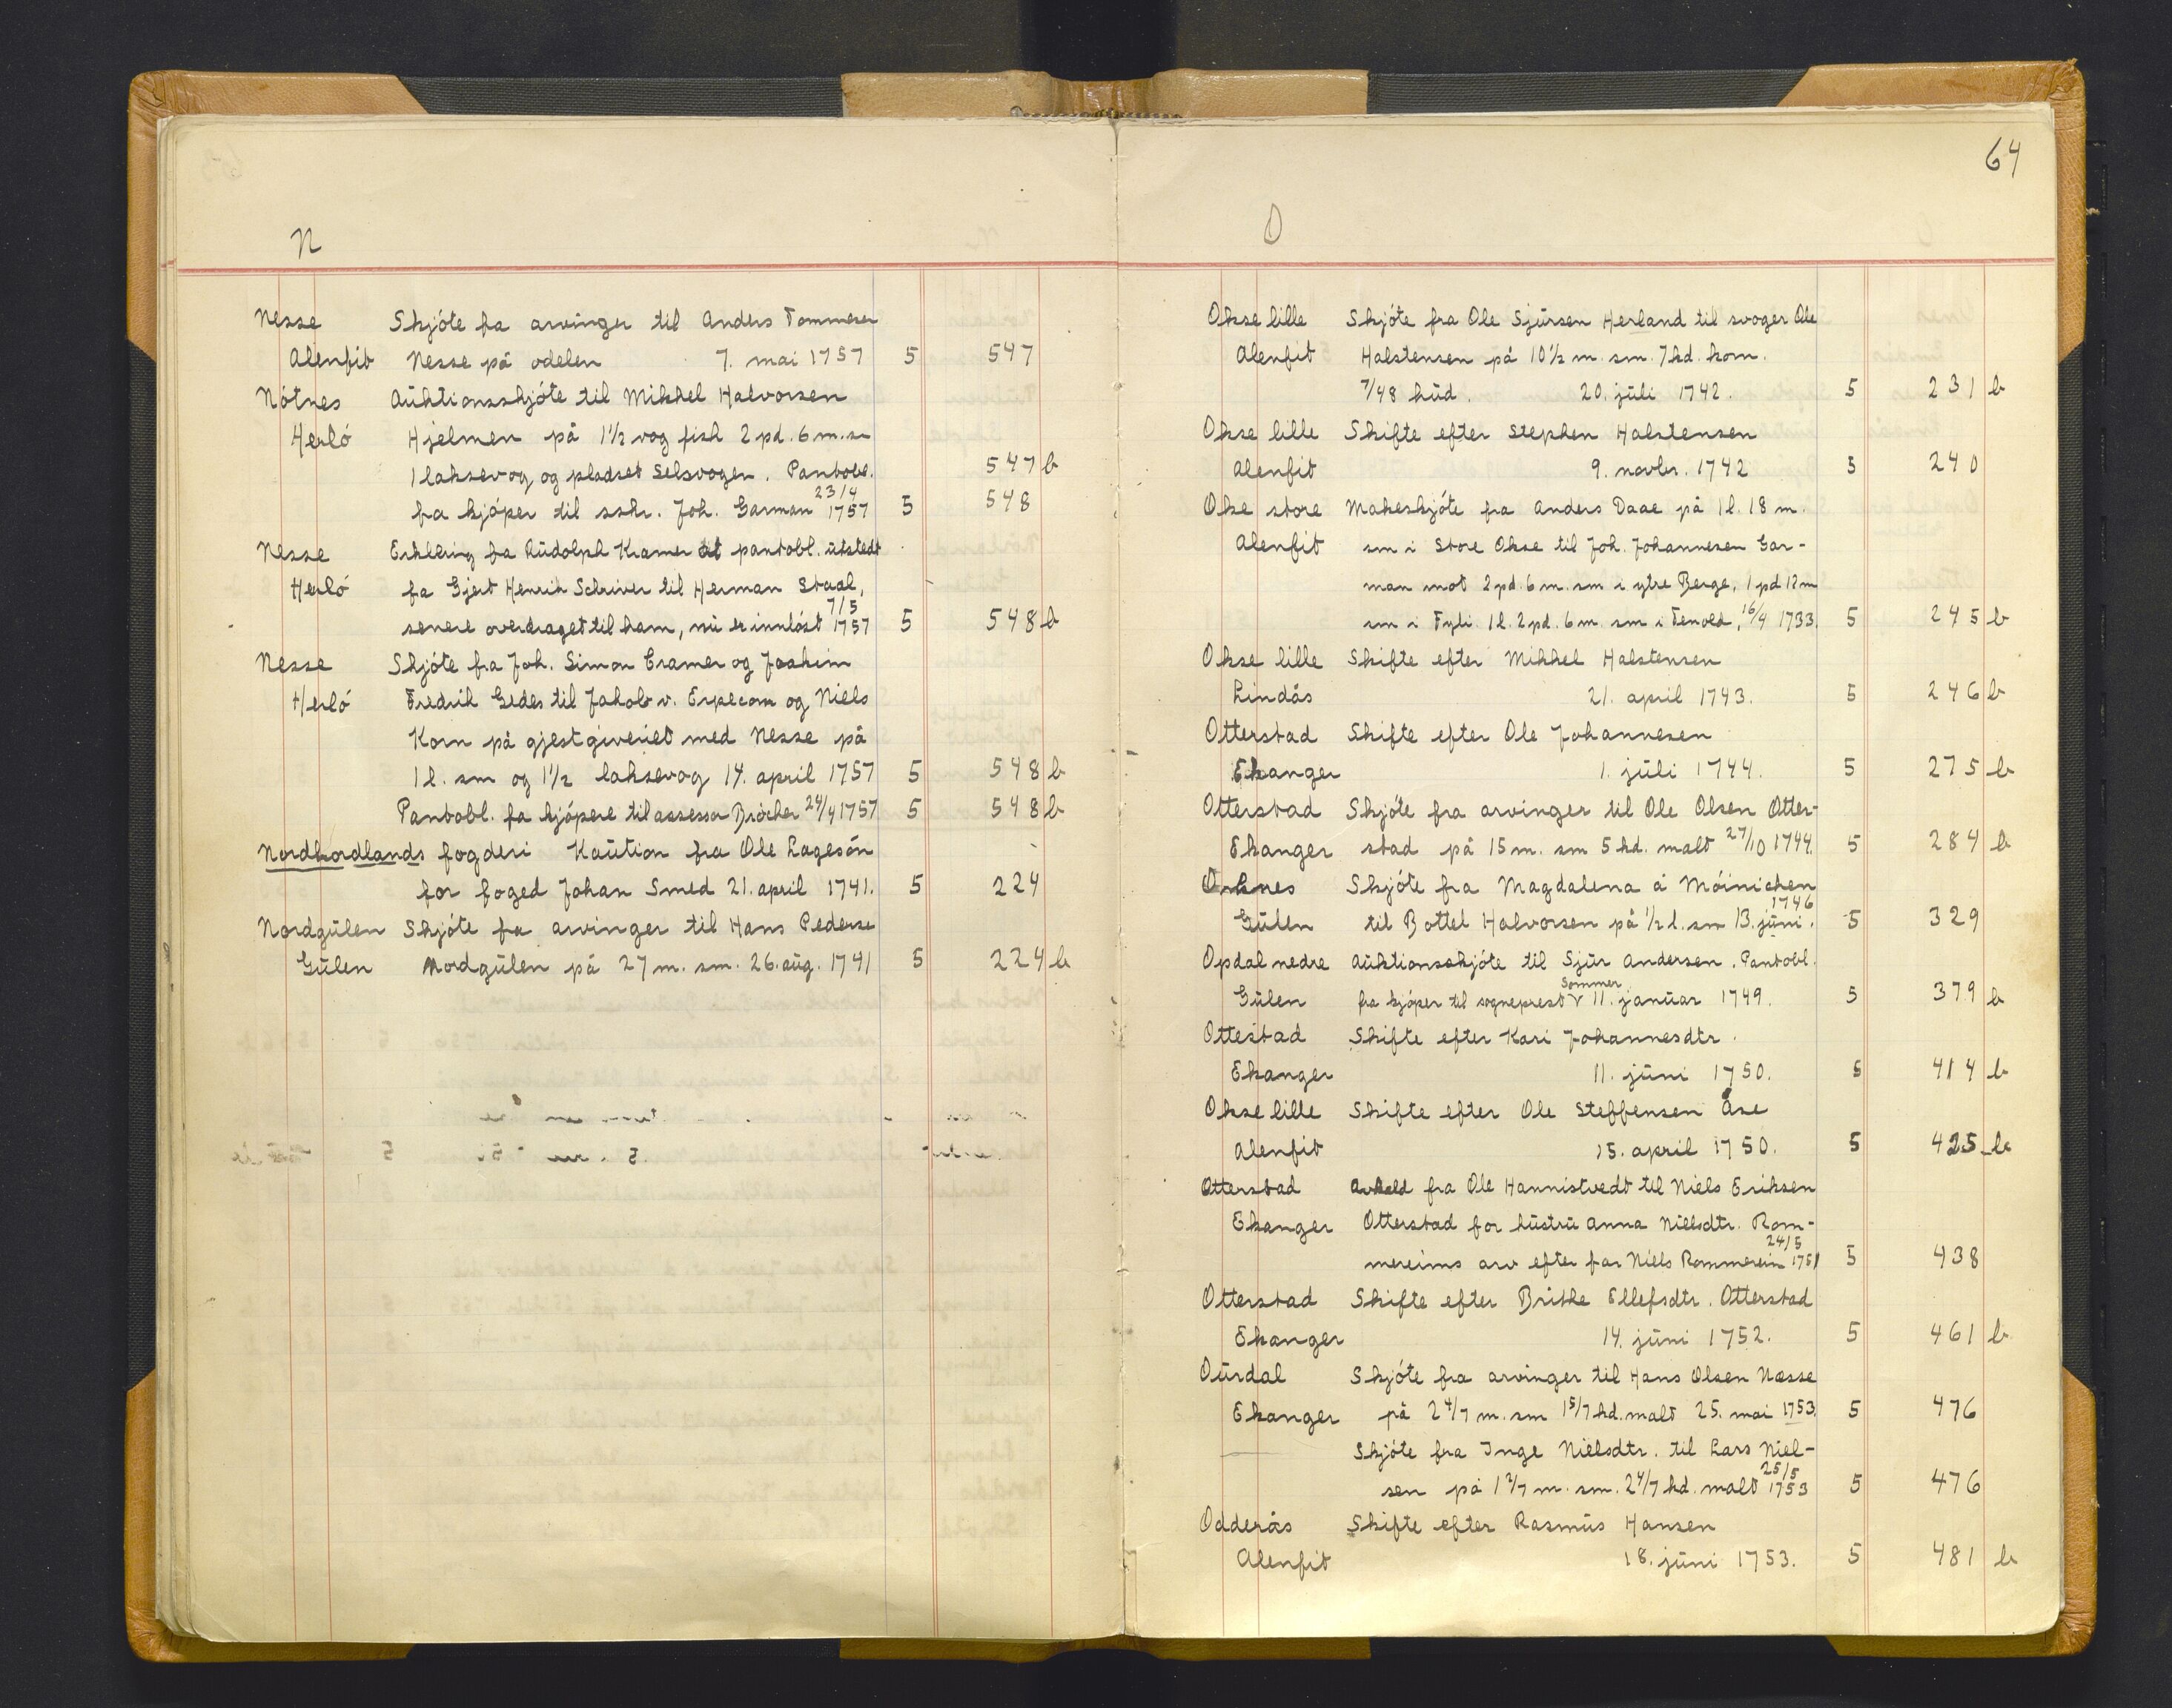 N
Nesse Skjóte fra arvinger til Anders Tommesen
Alenfit Nesse på odelen 7. mai 1757 5 547
Nótnes Auktionsskjóte til Mikkel Halvorsen
Herló Hjelmen på 1½ vog fisk 2 pd. 6 m. sm
1 laksevog og pladset Selsvogen. Pantobl. 547 b
fra kjóper til sskr. Joh. Garman 23/4 1757 5 548
Nesse Erklering fra Rudolph Kramer at pantobl. utstedt
Herló fra Gjert Henrik Schriver til Herman Staal,
senere overdraget til ham, nu er innlóst 7/5 1757 5 548 b
Nesse Skjóte fra Joh. Simon Cramer og Joakim
Herló Fredrik Gedes til Jakob v. Erpecom og Niels
Korn på gjestgiveriet med Nesse på
1 l. sm og 1½ laksevog 14. april 1757 5 548 b
Pantobl. fra kjópere til assessor Brócher 24/4 1757 5 548 b
Nordhordlands fogderi Kaution fra Ole Lagesón
for foged Johan Smed 21. april 1741. 5 224
Nordgulen Skjóte fra arvinger til Hans Pederse
Gulen Nordgulen på 27 m. sm. 26. aug. 1741 5 224 b
64
O
Okse lille Skjóte fra Ole Sjursen Herland til svoger Ole
Alenfit Halstensen på 10½ m. sm. 7 kd. korn.
7/48 hud. 20. juli 1742. 5 231 b
Okse lille Skifte efter Stephen Halstensen
Alenfit 9. novbr. 1742 5 240
Okse store Makeskjóte fra Anders Daae på 1 l. 18 m.
Alenfit sm i Store Okse til Joh. Johannesen Gar-
man mot 2 pd. 6 m. sm i ytre Berge, 1 pd 12 m
sm i Fyli. 1 l. 2 pd. 6 m. sm i Tenold, 16/4 1733. 5 245 b
Okse lille Skifte efter Mikkel Halstensen
Lindås 21. april 1743. 5 246 b
Otterstad Skifte efter Ole Johannesen
Ekanger 1. juli 1744. 5 275 b
Otterstad Skjóte fra arvinger til Ole Olsen Otter-
Ekanger stad på 15 m. sm 5 kd. malt 27/10 1744. 5 284 b
Orknes Skjóte fra Magdalena á Móinichen
Gulen til Bottel Halvorsen på ½ l. sm 13. juni. 1746 5 329
Opdal nedre Auktionsskjóte til Sjur Andersen. Pantobl.
Gulen fra kjóper til sogneprest Sommer 11. januar 1749. 5 379 b
Ottestad Skifte efter Kari Johannesdtr.
Ekanger 11. juni 1750. 5 414 b
Okse lille Skifte efter Ole Steffensen Åse
Alenfit 15. april 1750. 5 425 b
Otterstad Avkald fra Ole Hannistvedt til Niels Eriksen
Ekanger Otterstad for hustru Anna Nielsdtr. Rom-
mereims arv efter far Niels Rommereim 24/5 1751 5 438
Otterstad Skifte efter Brithe Ellefsdtr. Otterstad
Ekanger 14. juni 1752. 5 461 b
Ourdal Skjóte fra arvinger til Hans Olsen Næsse
Ekanger på 2 4/7 m. sm 1 5/7 kd. malt 25. mai 1753. 5 476
Skjóte fra Inge Nielsdtr. til Lars Niel-
sen på 1 2/7 m. sm. 2 4/7 kd. malt 25/5 1753 5 476
Odderås Skifte efter Rasmus Hansen
Alenfit 18. juni 1753. 5 481 b